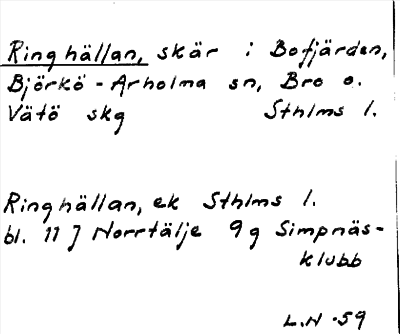 Ringhällan, skär i Bofjärden,
Björkö - Arholma sn, Bro o.
Vätö skg Sthlms l.
Ringhällan, ek Sthlms l.
bl. 11 J Norrtälje 9 g Simpnäs-
klubb
L.N. 59